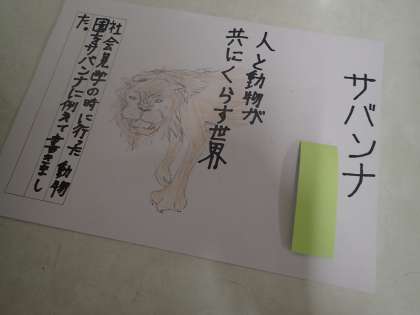 サバンナ
人と動物が
共にくらす世界
社会見学の時に行った動物
園をサバンナに例えて書きまし
た。